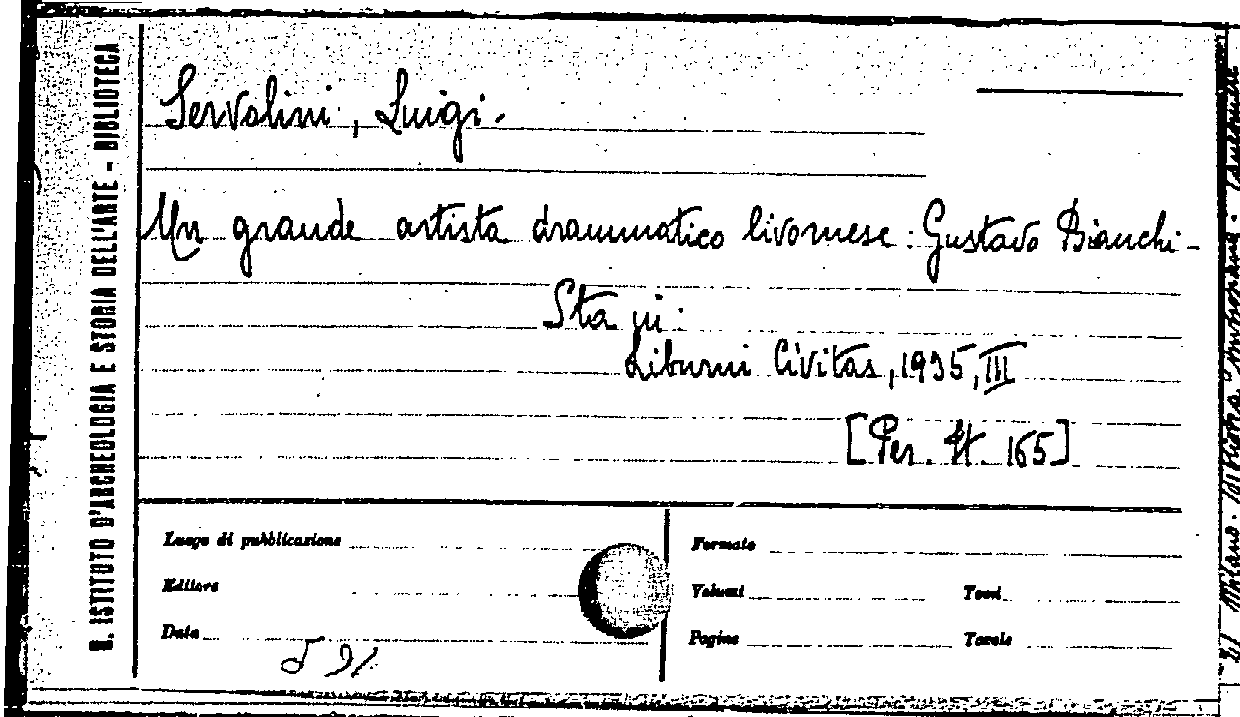 R. ISTITUTO D'ARCHEOLOGIA E STORIA DELL'ARTE - BIBLIOTECA
Servolini, Luigi.
Un grande artista drammatico livornese: Gustavo Bianchi-
Sta in:
Liburni Civitas, 1935, III
[Per. It. 165]
Luogo di pubblicazione
Editore
Data
Formato
Volumi Tomi
Pagine Tavole